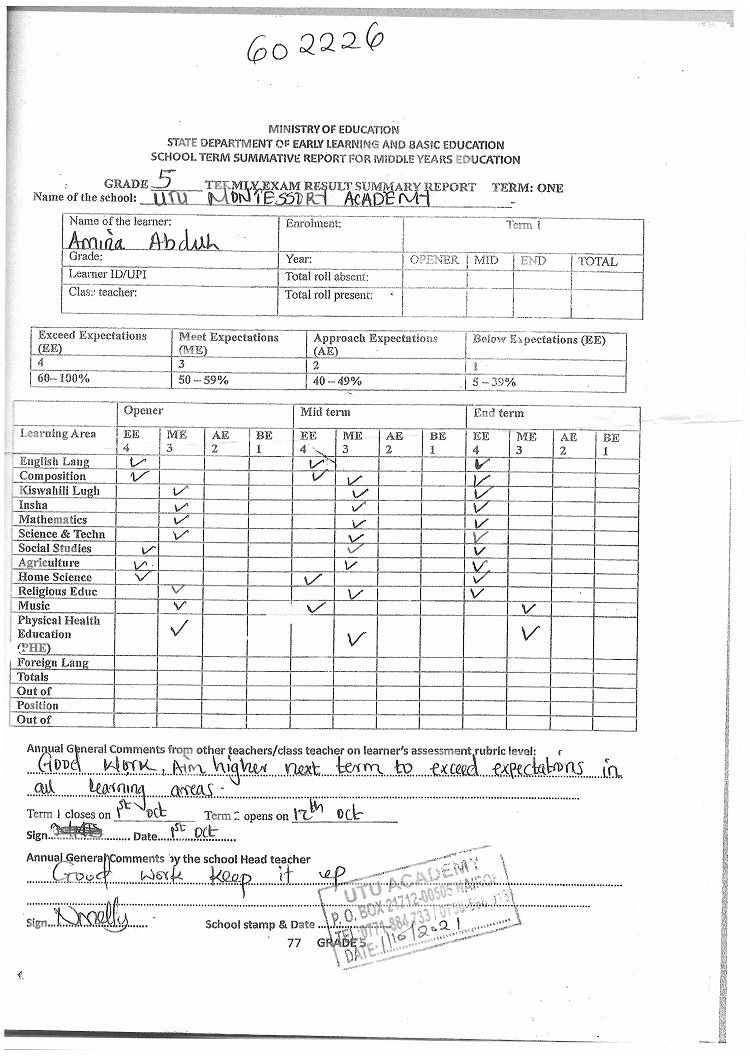 602226
MINISTRY OF EDUCATION
STATE DEPARTMENT OF EARLY LEARNING AND BASIC EDUCATION
SCHOOL TERM SUMMATIVE REPORT FOR MIDDLE YEARS EDUCATION
GRADE 5 TERMLY EXAM RESULT SUMMARY REPORT TERM: ONE
Name of the school: UTU MONTESSORI ACADEMY
Name of the learner: Enrolment: Term 1
Amina Abduh
Grade: Year: OPENER MID END TOTAL
Learner ID/UPI Total roll absent:
Class teacher: Total roll present:
Exceed Expectations (EE) Meet Expectations (ME) Approach Expectations (AE) Below Expectations (EE)
4 3 2 1
60–100% 50 – 59% 40 – 49% 5 – 39%
Opener Mid term End term
Learning Area EE 4 ME 3 AE 2 BE 1 EE 4 ME 3 AE 2 BE 1 EE 4 ME 3 AE 2 BE 1
English Lang ✓ ✓ ✓
Composition ✓ ✓ ✓ ✓
Kiswahili Lugh ✓ ✓ ✓
Insha ✓ ✓ ✓
Mathematics ✓ ✓ ✓
Science & Techn ✓ ✓ ✓
Social Studies ✓ ✓ ✓
Agriculture ✓ ✓ ✓
Home Science ✓ ✓ ✓
Religious Educ ✓ ✓ ✓
Music ✓ ✓ ✓
Physical Health Education (PHE) ✓ ✓ ✓
Foreign Lang
Totals
Out of
Position
Out of
Annual General Comments from other teachers/class teacher on learner's assessment rubric level:
Good work, Aim higher next term to exceed expectations in
all learning areas.
Term 1 closes on 1st Oct Term 2 opens on 12th Oct
Sign Date 1st Oct
Annual General Comments by the school Head teacher
Good work keep it up
Sign School stamp & Date
UTU ACADEMY
P. O. BOX 21712-00505
TEL: 0771-884 733 /
DATE: 1/10/2021
77 GRADE 5